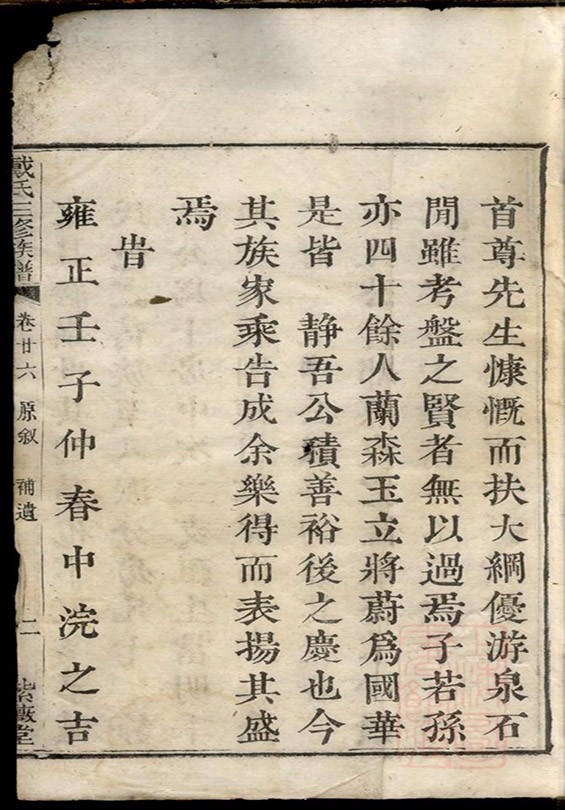 首尊先生慷慨而扶大綱優游泉石
閒雖考盤之賢者無以過焉子若孫
亦四十餘人蘭森玉立將蔚爲國華
是皆　靜吾公積善裕後之慶也今
其族家乘告成余樂得而表揚其盛
焉
旹
雍正壬子仲春中浣之吉
戴氏三修族譜　卷廿六　原叙　補遺　二　紫薇堂